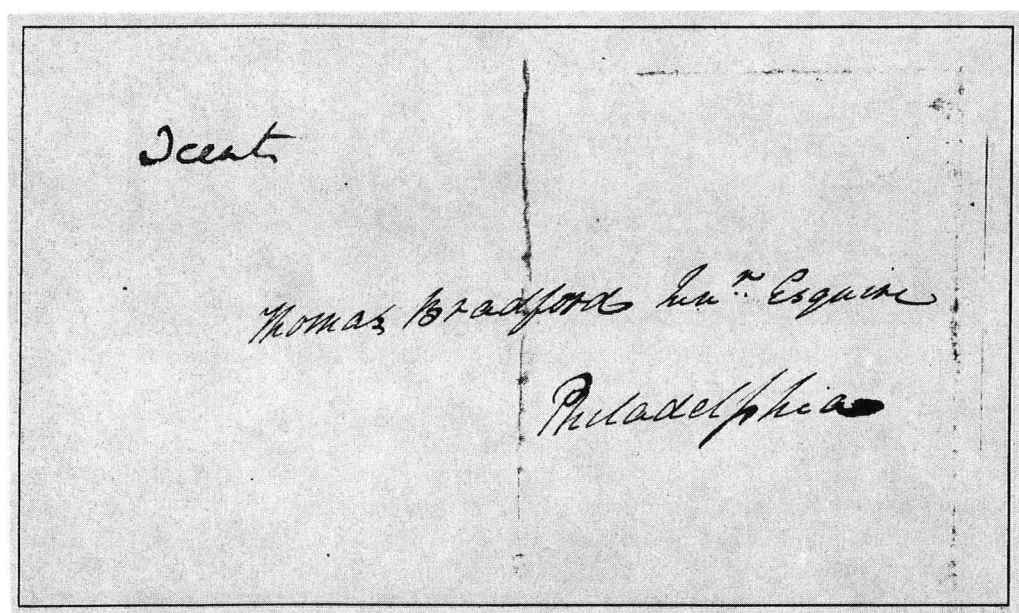 2cents
Thomas Bradford Junr Esquire
Philadelphia